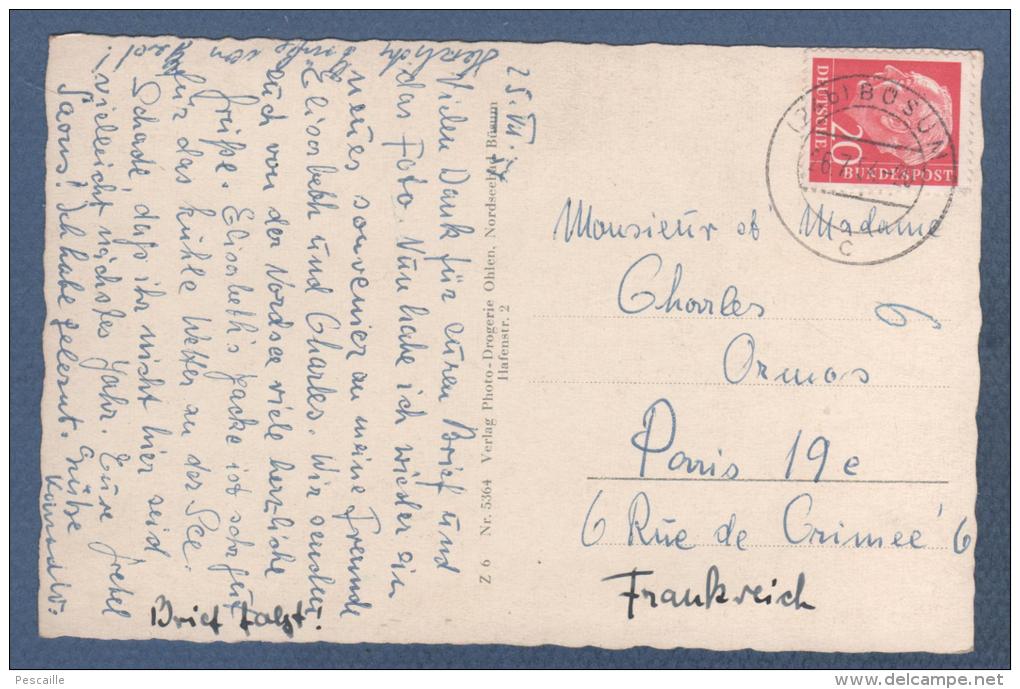 25. VII.
Vielen Dank für euren Brief und
das Foto. Nun habe ich wieder ein
neues souvenier an meine Freunde
Elisabeth und Charles. Wir senden
euch von der Nordsee viele herzliche
Grüße. Elisabeth's Jacke ist sehr gut
für das kühle Wetter an der See.
Schade, daß ihr nicht hier seid
vielleicht nächstes Jahr. Eure Gretel
Saons! Ich habe gelernt. Grüße
Herzliche
von
Brief folgt!
Z 6 Nr. 5364 Verlag Photo-Drogerie Ohlen, Nordseebad Büsum
Hafenstr. 2
DEUTSCHE
BUNDESPOST
20
BÜSUM
c
Monsieur et Madame
Charles
Ormos
Paris 19e
6 Rue de Crimeé 6
Frankreich
Pescaille